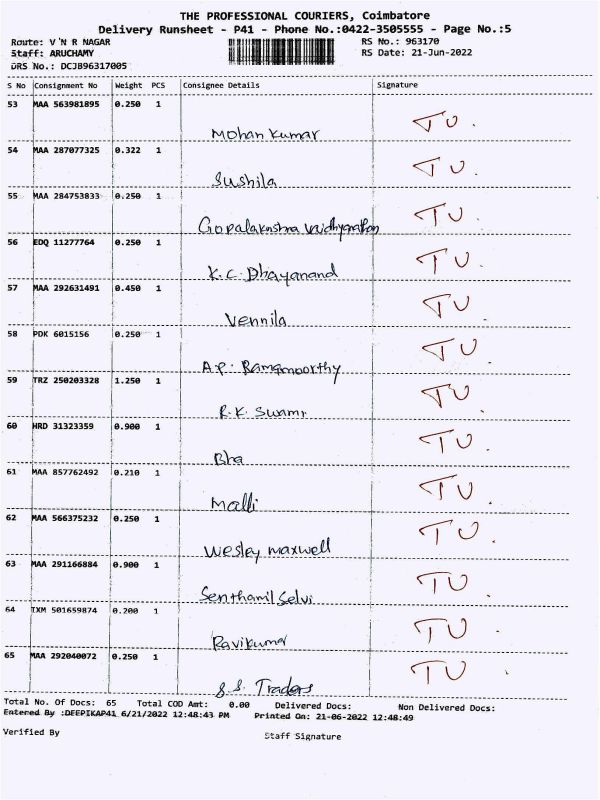 THE PROFESSIONAL COURIERS, Coimbatore
Delivery Runsheet - P41 - Phone No.:0422-3505555 - Page No.:5
Route: V N R NAGAR RS No.: 963170
Staff: ARUCHAMY RS Date: 21-Jun-2022
DRS No.: DCJB96317005
S No Consignment No Weight PCS Consignee Details Signature
53 MAA 563981895 0.250 1 TU.
Mohan Kumar
54 MAA 287077325 0.322 1 TU.
Sushila
55 MAA 284753833 0.250 1 TU.
Gopalakrishna Vaidhyanathan
56 EDQ 11277764 0.250 1 TU.
K.C. Dhayanand
57 MAA 292631491 0.450 1 TU.
Vennila
58 PDK 6015156 0.250 1 TU.
A.P. Ramamoorthy
59 TRZ 250203328 1.250 1 TU.
R.K. Swami
60 HRD 31323359 0.900 1 TU.
Bha
61 MAA 857762492 0.210 1 TU.
Malli
62 MAA 566375232 0.250 1 TU.
Wesley maxwell
63 MAA 291166884 0.900 1 TU.
Senthamil Selvi
64 IXM 501659874 0.200 1 TU.
Ravikumar
65 MAA 292040072 0.250 1 TU.
S.S. Traders
Total No. Of Docs: 65 Total COD Amt: 0.00 Delivered Docs: Non Delivered Docs:
Entered By :DEEPIKAP41 6/21/2022 12:48:43 PM Printed On: 21-06-2022 12:48:49
Verified By Staff Signature